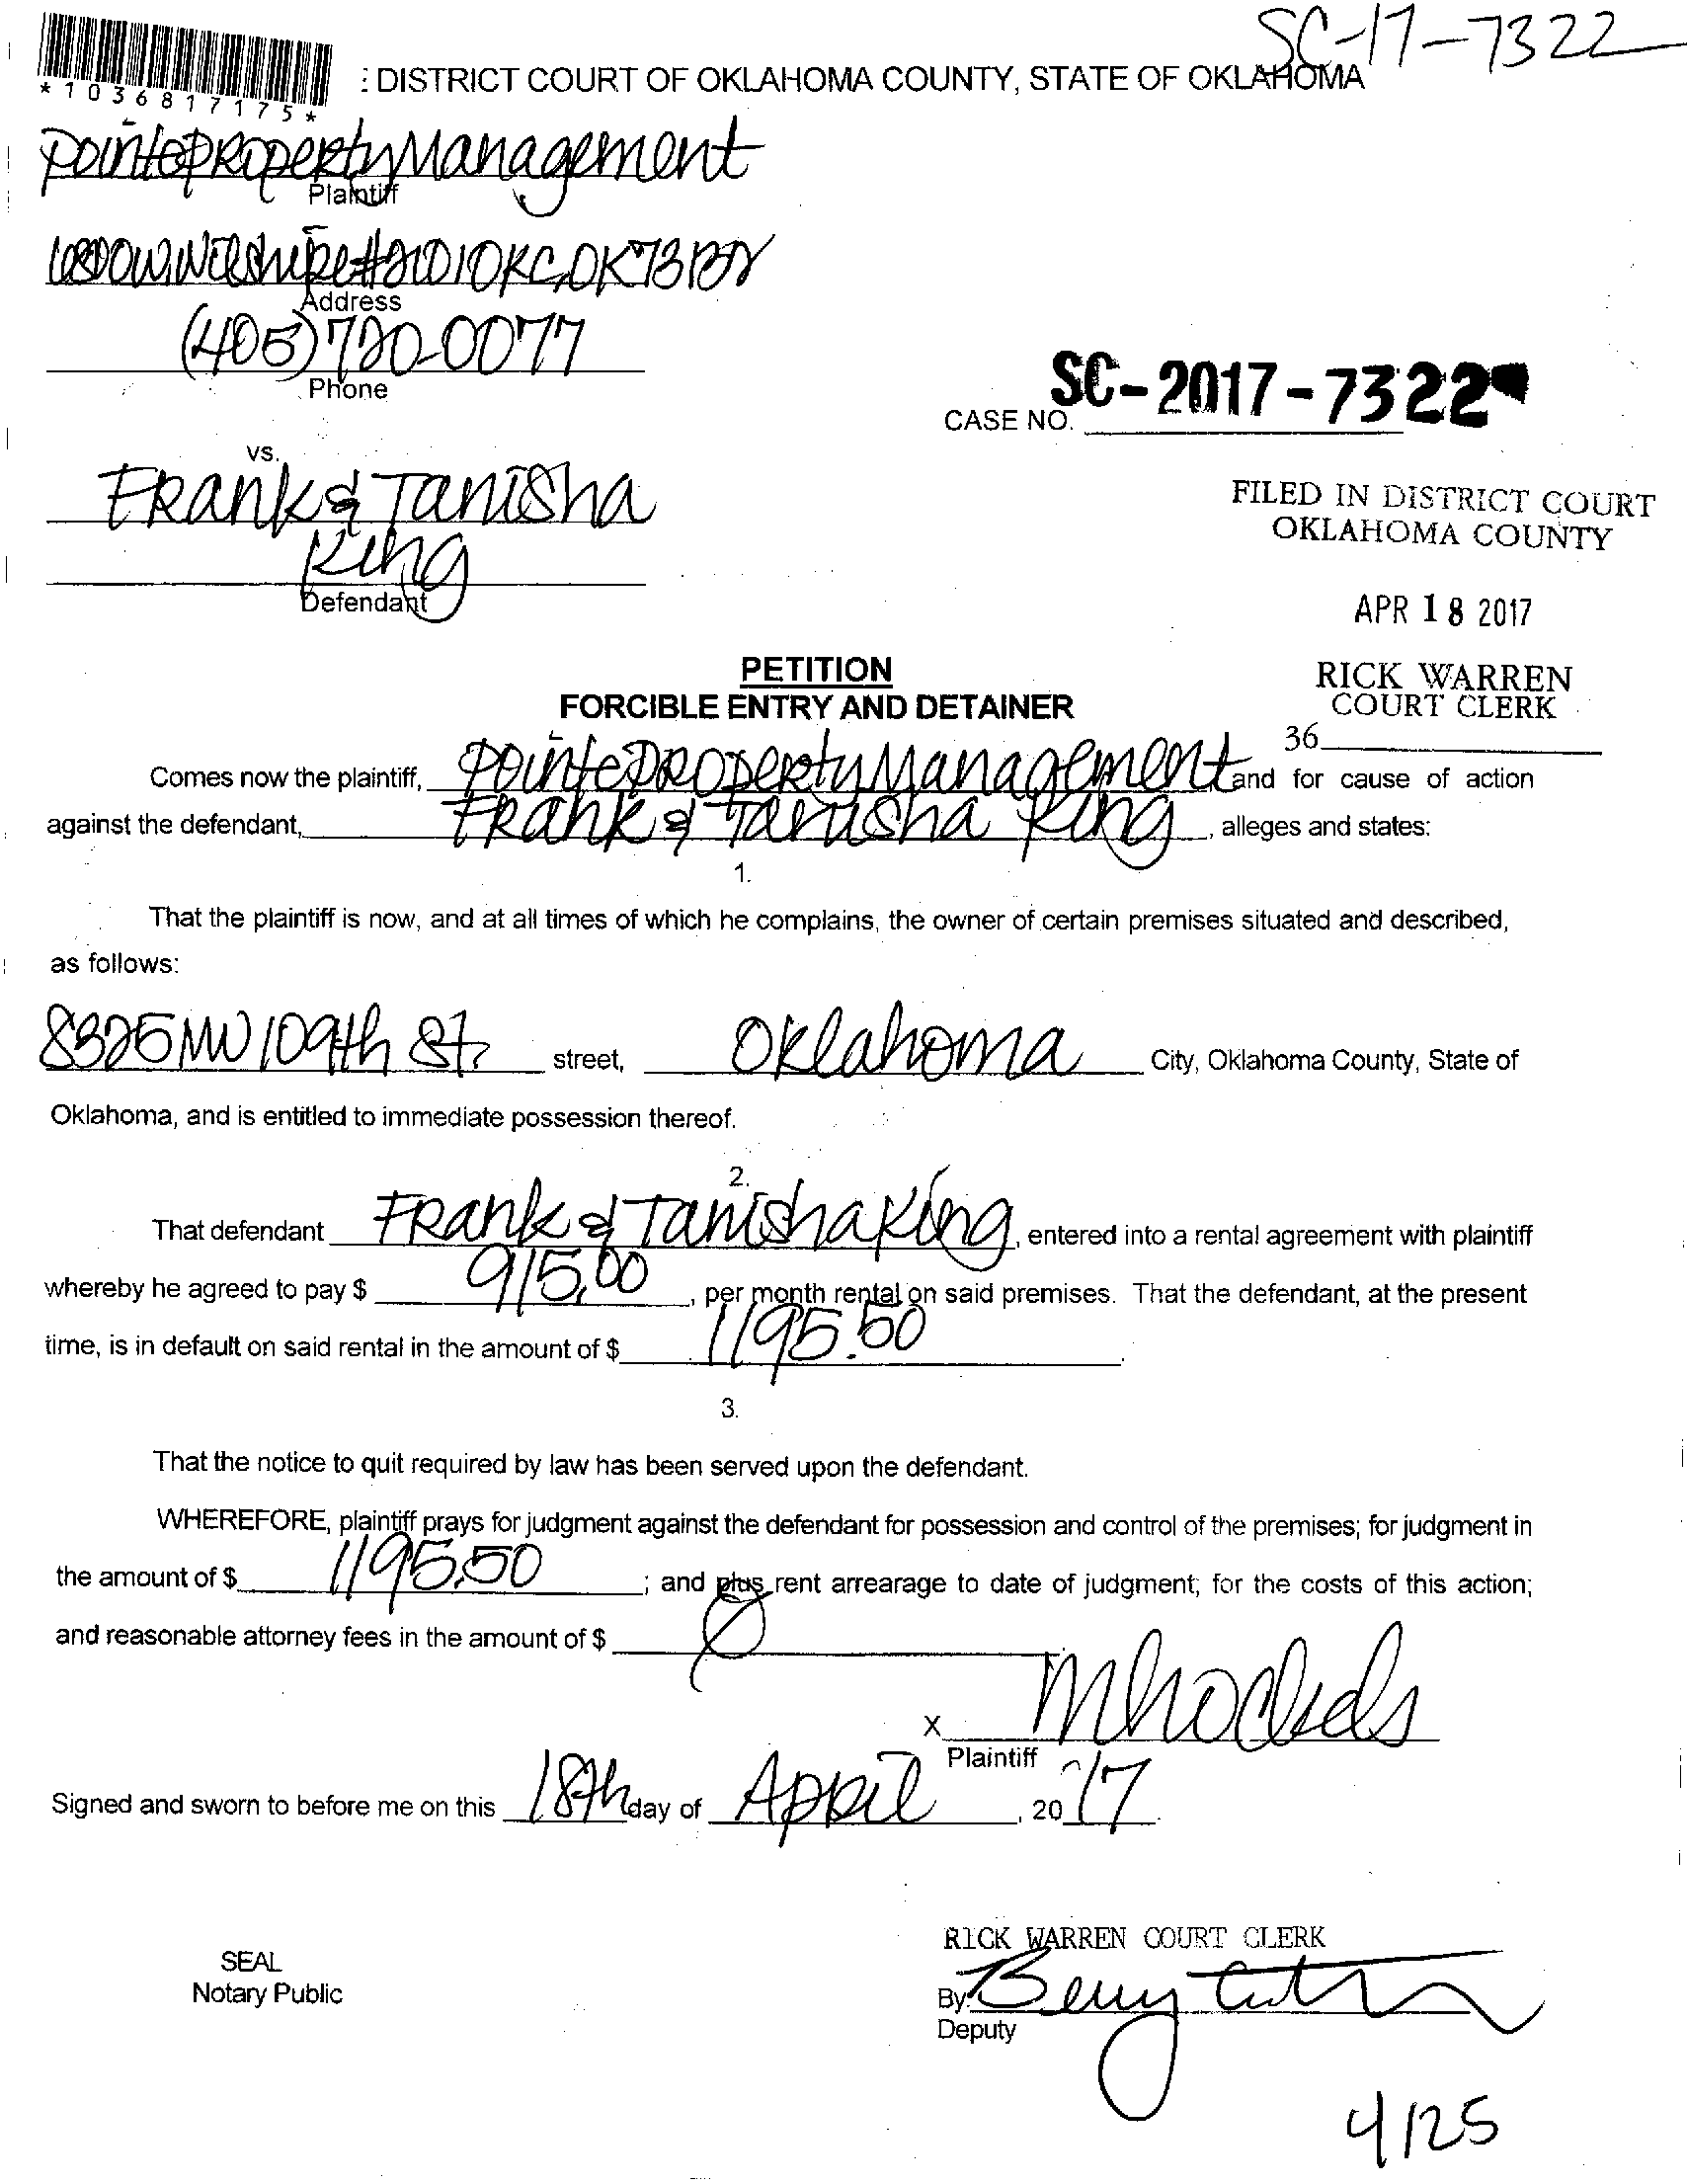 SC-17-7322
: DISTRICT COURT OF OKLAHOMA COUNTY, STATE OF OKLAHOMA
* 1 0 3 6 8 1 7 1 7 5 *
Pointe Property Management
Plaintiff
W. Wilshire # OKC, OK
Address
(405) 720-0077
Phone
SC-2017-7322
CASE NO.
vs.
Frank & Tanisha
King
Defendant
FILED IN DISTRICT COURT
OKLAHOMA COUNTY
APR 18 2017
RICK WARREN
COURT CLERK
36
PETITION
FORCIBLE ENTRY AND DETAINER
Comes now the plaintiff, Pointe Property Management and for cause of action
against the defendant, Frank & Tanisha King, alleges and states:
1.
That the plaintiff is now, and at all times of which he complains, the owner of certain premises situated and described,
as follows:
8325 NW 109th St. street, Oklahoma City, Oklahoma County, State of
Oklahoma, and is entitled to immediate possession thereof.
2.
That defendant Frank & Tanisha King, entered into a rental agreement with plaintiff
whereby he agreed to pay $ 915.00, per month rental on said premises. That the defendant, at the present
time, is in default on said rental in the amount of $ 1195.50.
3.
That the notice to quit required by law has been served upon the defendant.
WHEREFORE, plaintiff prays for judgment against the defendant for possession and control of the premises; for judgment in
the amount of $ 1195.50; and plus rent arrearage to date of judgment; for the costs of this action;
and reasonable attorney fees in the amount of $ Ø
X
Plaintiff
Signed and sworn to before me on this 18th day of April, 20 17.
RICK WARREN COURT CLERK
SEAL
Notary Public
By:
Deputy
4/25